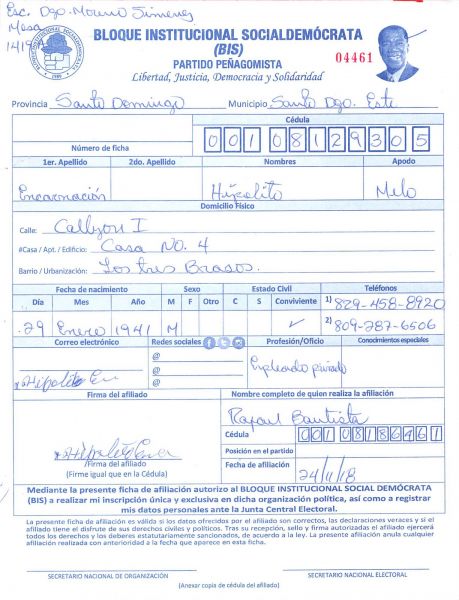 Esc. Dgo. Moreno Jimenes
Mesa
BLOQUE INSTITUCIONAL SOCIALDEMÓCRATA
(BIS)
PARTIDO PEÑAGOMISTA
Libertad, Justicia, Democracia y Solidaridad
04461
Provincia Santo Domingo Municipio Santo Dgo. Este
Cédula
Número de ficha 00108129305
1er. Apellido 2do. Apellido Nombres Apodo
Encarnación Hipolito Melo
Domicilio Físico
Calle: Callejon I
#Casa / Apt. / Edificio: Casa No. 4
Barrio / Urbanización: Los tres Brasos.
Fecha de nacimiento Sexo Estado Civil Teléfonos
Día Mes Año M F Otro C S Conviviente 1) 829-458-8920
29 Enero 1941 M ✓ 2) 809-287-6506
Correo electrónico Redes sociales Profesión/Oficio Conocimientos especiales
@
@
@
Empleado privado
Hipolito En
Firma del afiliado Nombre completo de quien realiza la afiliación
Rafael Bautista
Cédula 00108186461
Posición en el partido
Fecha de afiliación 24/11/18
Firma del afiliado
(Firme igual que en la Cédula)
Mediante la presente ficha de afiliación autorizo al BLOQUE INSTITUCIONAL SOCIAL DEMÓCRATA
(BIS) a realizar mi inscripción única y exclusiva en dicha organización política, así como a registrar
mis datos personales ante la Junta Central Electoral.
La presente ficha de afiliación es válida si los datos ofrecidos por el afiliado son correctos, las declaraciones veraces y si el
afiliado tiene el disfrute de sus derechos civiles y políticos. Tras su recepción, sello y firma autorizada el afiliado ejercerá
todos los derechos y los deberes estatutariamente sancionados, de acuerdo a la ley. La presente afiliación anula cualquier
afiliación realizada con anterioridad a la fecha que aparece en esta ficha.
SECRETARIO NACIONAL DE ORGANIZACIÓN SECRETARIO NACIONAL ELECTORAL
(Anexar copia de cédula del afiliado)